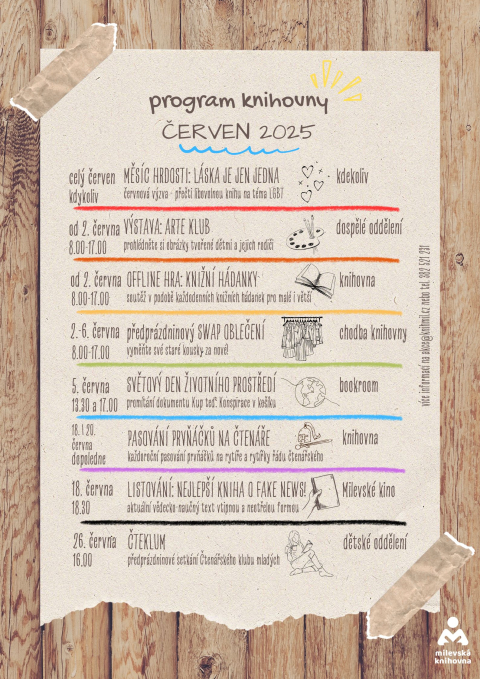 program knihovny
ČERVEN 2025
celý červen
kdykoliv
MĚSÍC HRDOSTI: LÁSKA JE JEN JEDNA
červnová výzva - přečti libovolnou knihu na téma LGBT
kdekoliv
od 2. června
8.00-17.00
VÝSTAVA: ARTE KLUB
prohlédněte si obrázky tvořené dětmi a jejich rodiči
dospělé oddělení
od 2. června
8.00-17.00
OFFLINE HRA: KNIŽNÍ HÁDANKY
soutěž v podobě každodenních knižních hádanek pro malé i větší
knihovna
2.-6. června
8.00-17.00
předprázdninový SWAP OBLEČENÍ
vyměňte své staré kousky za nové!
chodba knihovny
5. června
13.30 a 17.00
SVĚTOVÝ DEN ŽIVOTNÍHO PROSTŘEDÍ
promítání dokumentu Kup teď: Konspirace v košíku
bookroom
18. i 20.
června
dopoledne
PASOVÁNÍ PRVŇÁČKŮ NA ČTENÁŘE
každoroční pasování prvňáčků na rytíře a rytířky řádu čtenářského
knihovna
18. června
18.30
LISTOVÁNÍ: NEJLEPŠÍ KNIHA O FAKE NEWS!
aktuální vědecko-naučný text vtipnou a neotřelou formou
Milevské kino
26. června
16.00
ČTEKLUM
předprázdninové setkání Čtenářského klubu mladých
dětské oddělení
více informací na akce@knihmil.cz nebo tel. 382 521 231
milevská
knihovna